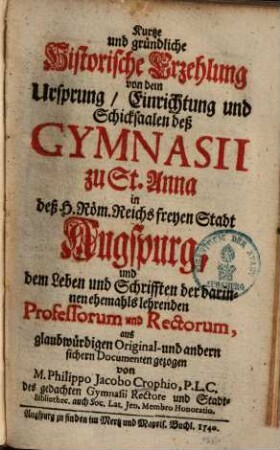 Kurtze
und gründliche
Historische Erzehlung
von dem
Ursprung / Einrichtung und
Schicksaalen deß
GYMNASII
zu St. Anna
in
deß H. Röm. Reichs freyen Stadt
Augspurg,
und
dem Leben und Schrifften der darin-
nen ehemahls lehrenden
Professorum und Rectorum,
aus
glaubwürdigen Original- und andern
sichern Documenten gezogen
von
M. Philippo Jacobo Crophio, P. L. C.
des gedachten Gymnasii Rectore und Stadt-
Bibliothec. auch Soc. Lat. Jen. Membro Honoratio.
Augspurg zu finden im Mertz und Mayerisl. Buchl. 1740.